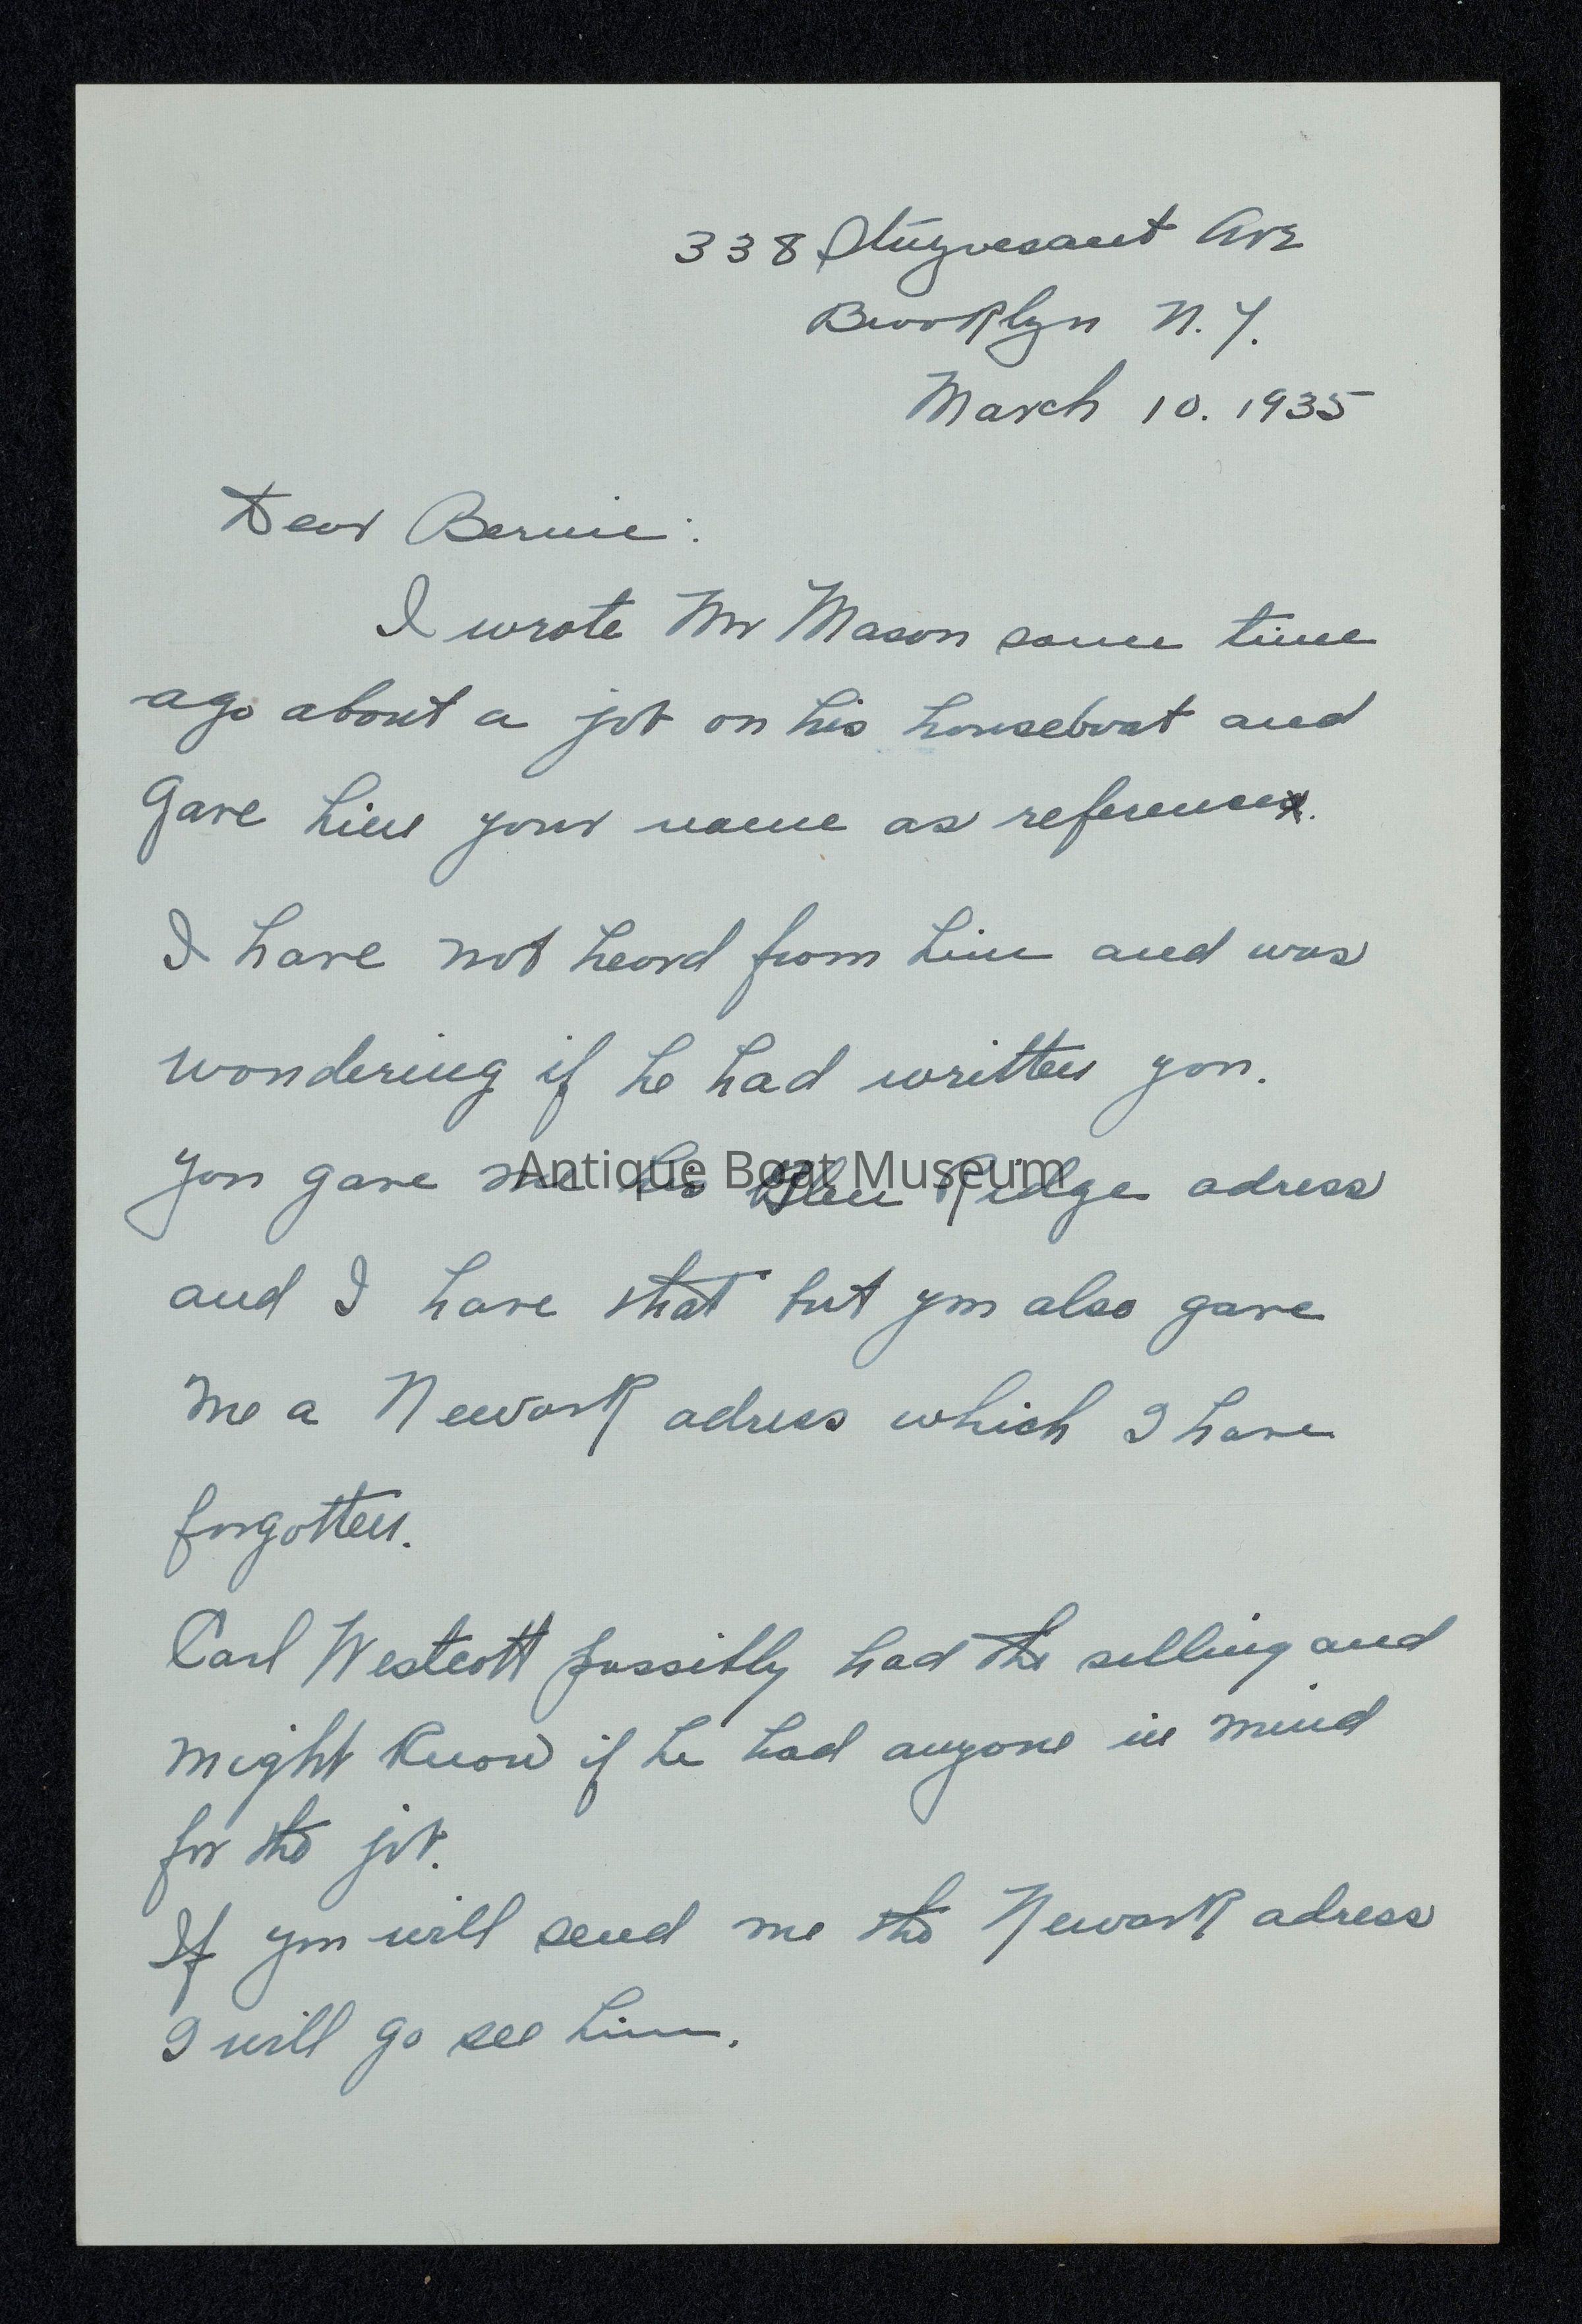 338 Stuyvesant Ave
Brooklyn N.Y.
March 10. 1935
Dear Bernie:
I wrote Mr Mason some time
ago about a job on his houseboat and
gave him your name as reference.
I have not heard from him and was
wondering if he had written you.
You gave me his Glen Ridge adress
Antique Boat Museum
and I have that but you also gave
me a Newark adress which I have
forgotten.
Carl Westcott possibly had the selling and
might know if he had anyone in mind
for the job.
If you will send me the Newark adress
I will go see him.